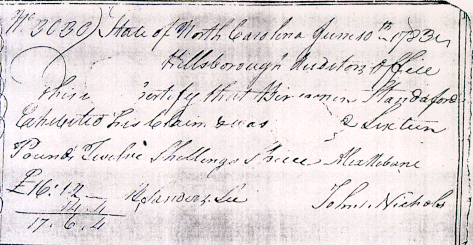 No 3030) State of North Carolina June 10th 1783
Hillsborough Auditors Office
This certify that Standaford
Exhibited his Claim & was Sixteen
Pound, Twelve Shillings & three Alex Mebane
£16:12
14.4 John Nichols
17.6.4